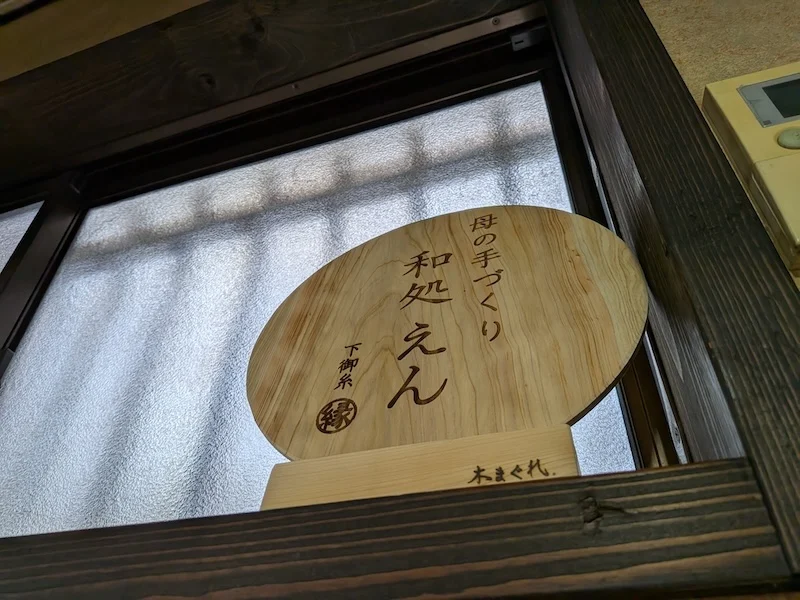 母の手づくり
和処 えん
下御糸
縁
木まぐれ.